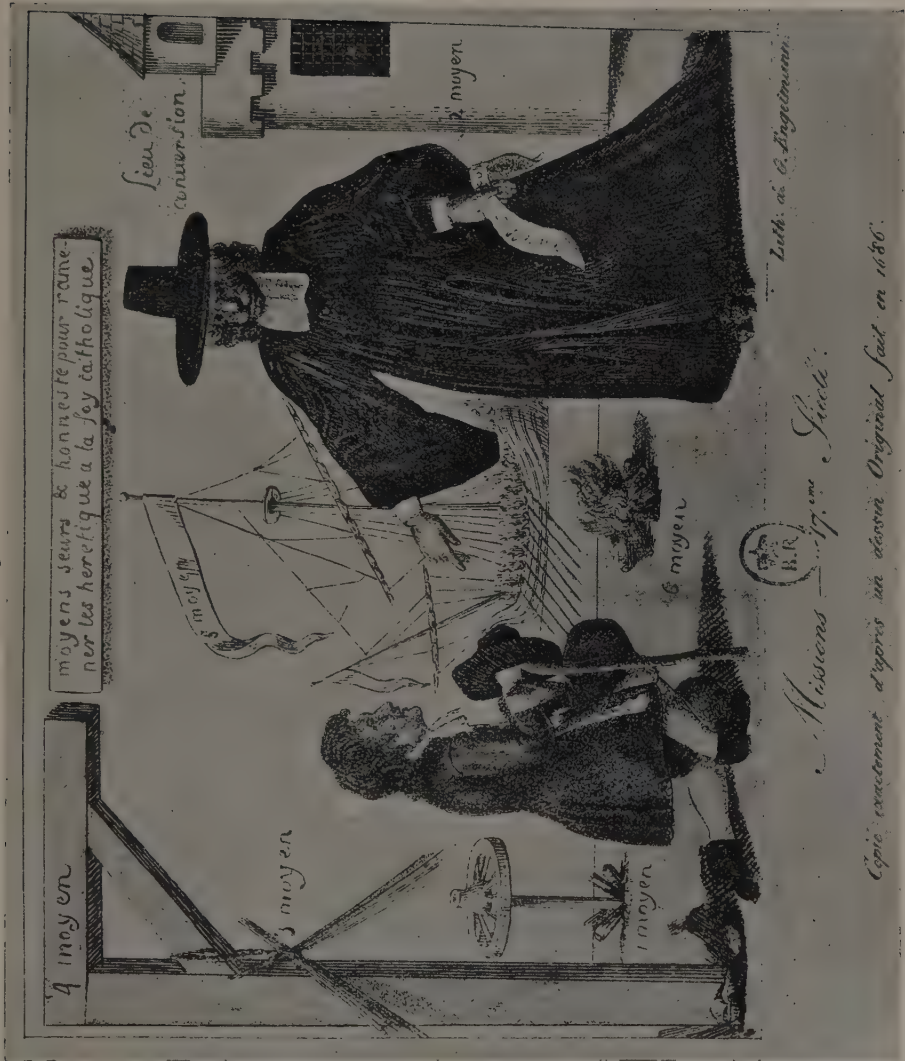 moyens seurs & honneste pour rame-
ner les heretique a la foy catholique.
Lieu de
conversion.
4 moyen
3 moyen
1 moyen
5 moyen
6 moyen
2 moyen
Lith: de G. Engelmann.
Missions — 17.eme Siècle.
B.R.
Copié exactement d'après un dessin Original fait en 1686.